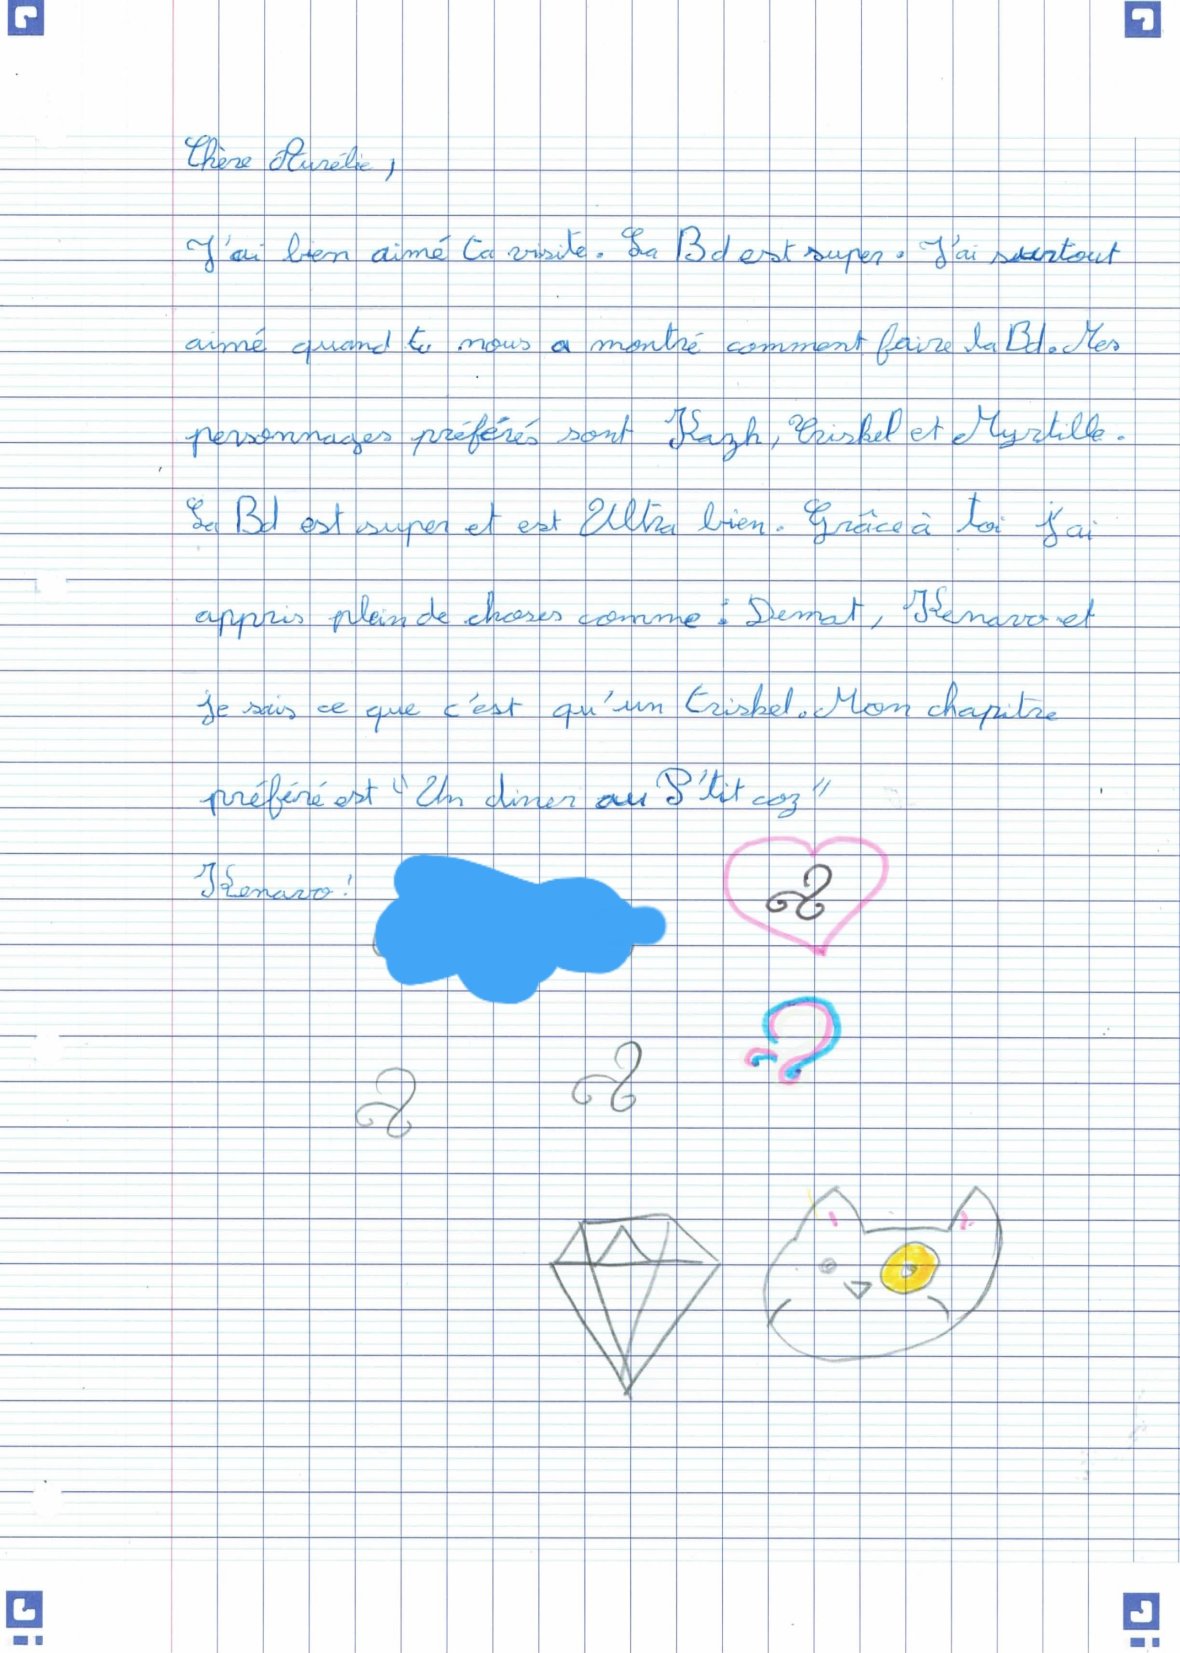 Chère Aurélie,
J'ai bien aimé ta visite. La Bd est super. J'ai surtout
aimé quand tu nous a montré comment faire la Bd. Mes
personnages préférés sont Kazh, Triskel et Myrtille.
La Bd est super et est Ultra bien. Grâce à toi j'ai
appris plein de choses comme : Demat, Kenavo et
je sais ce que c'est qu'un triskel. Mon chapitre
préféré est "Un diner au P'tit coz"
Kenavo!